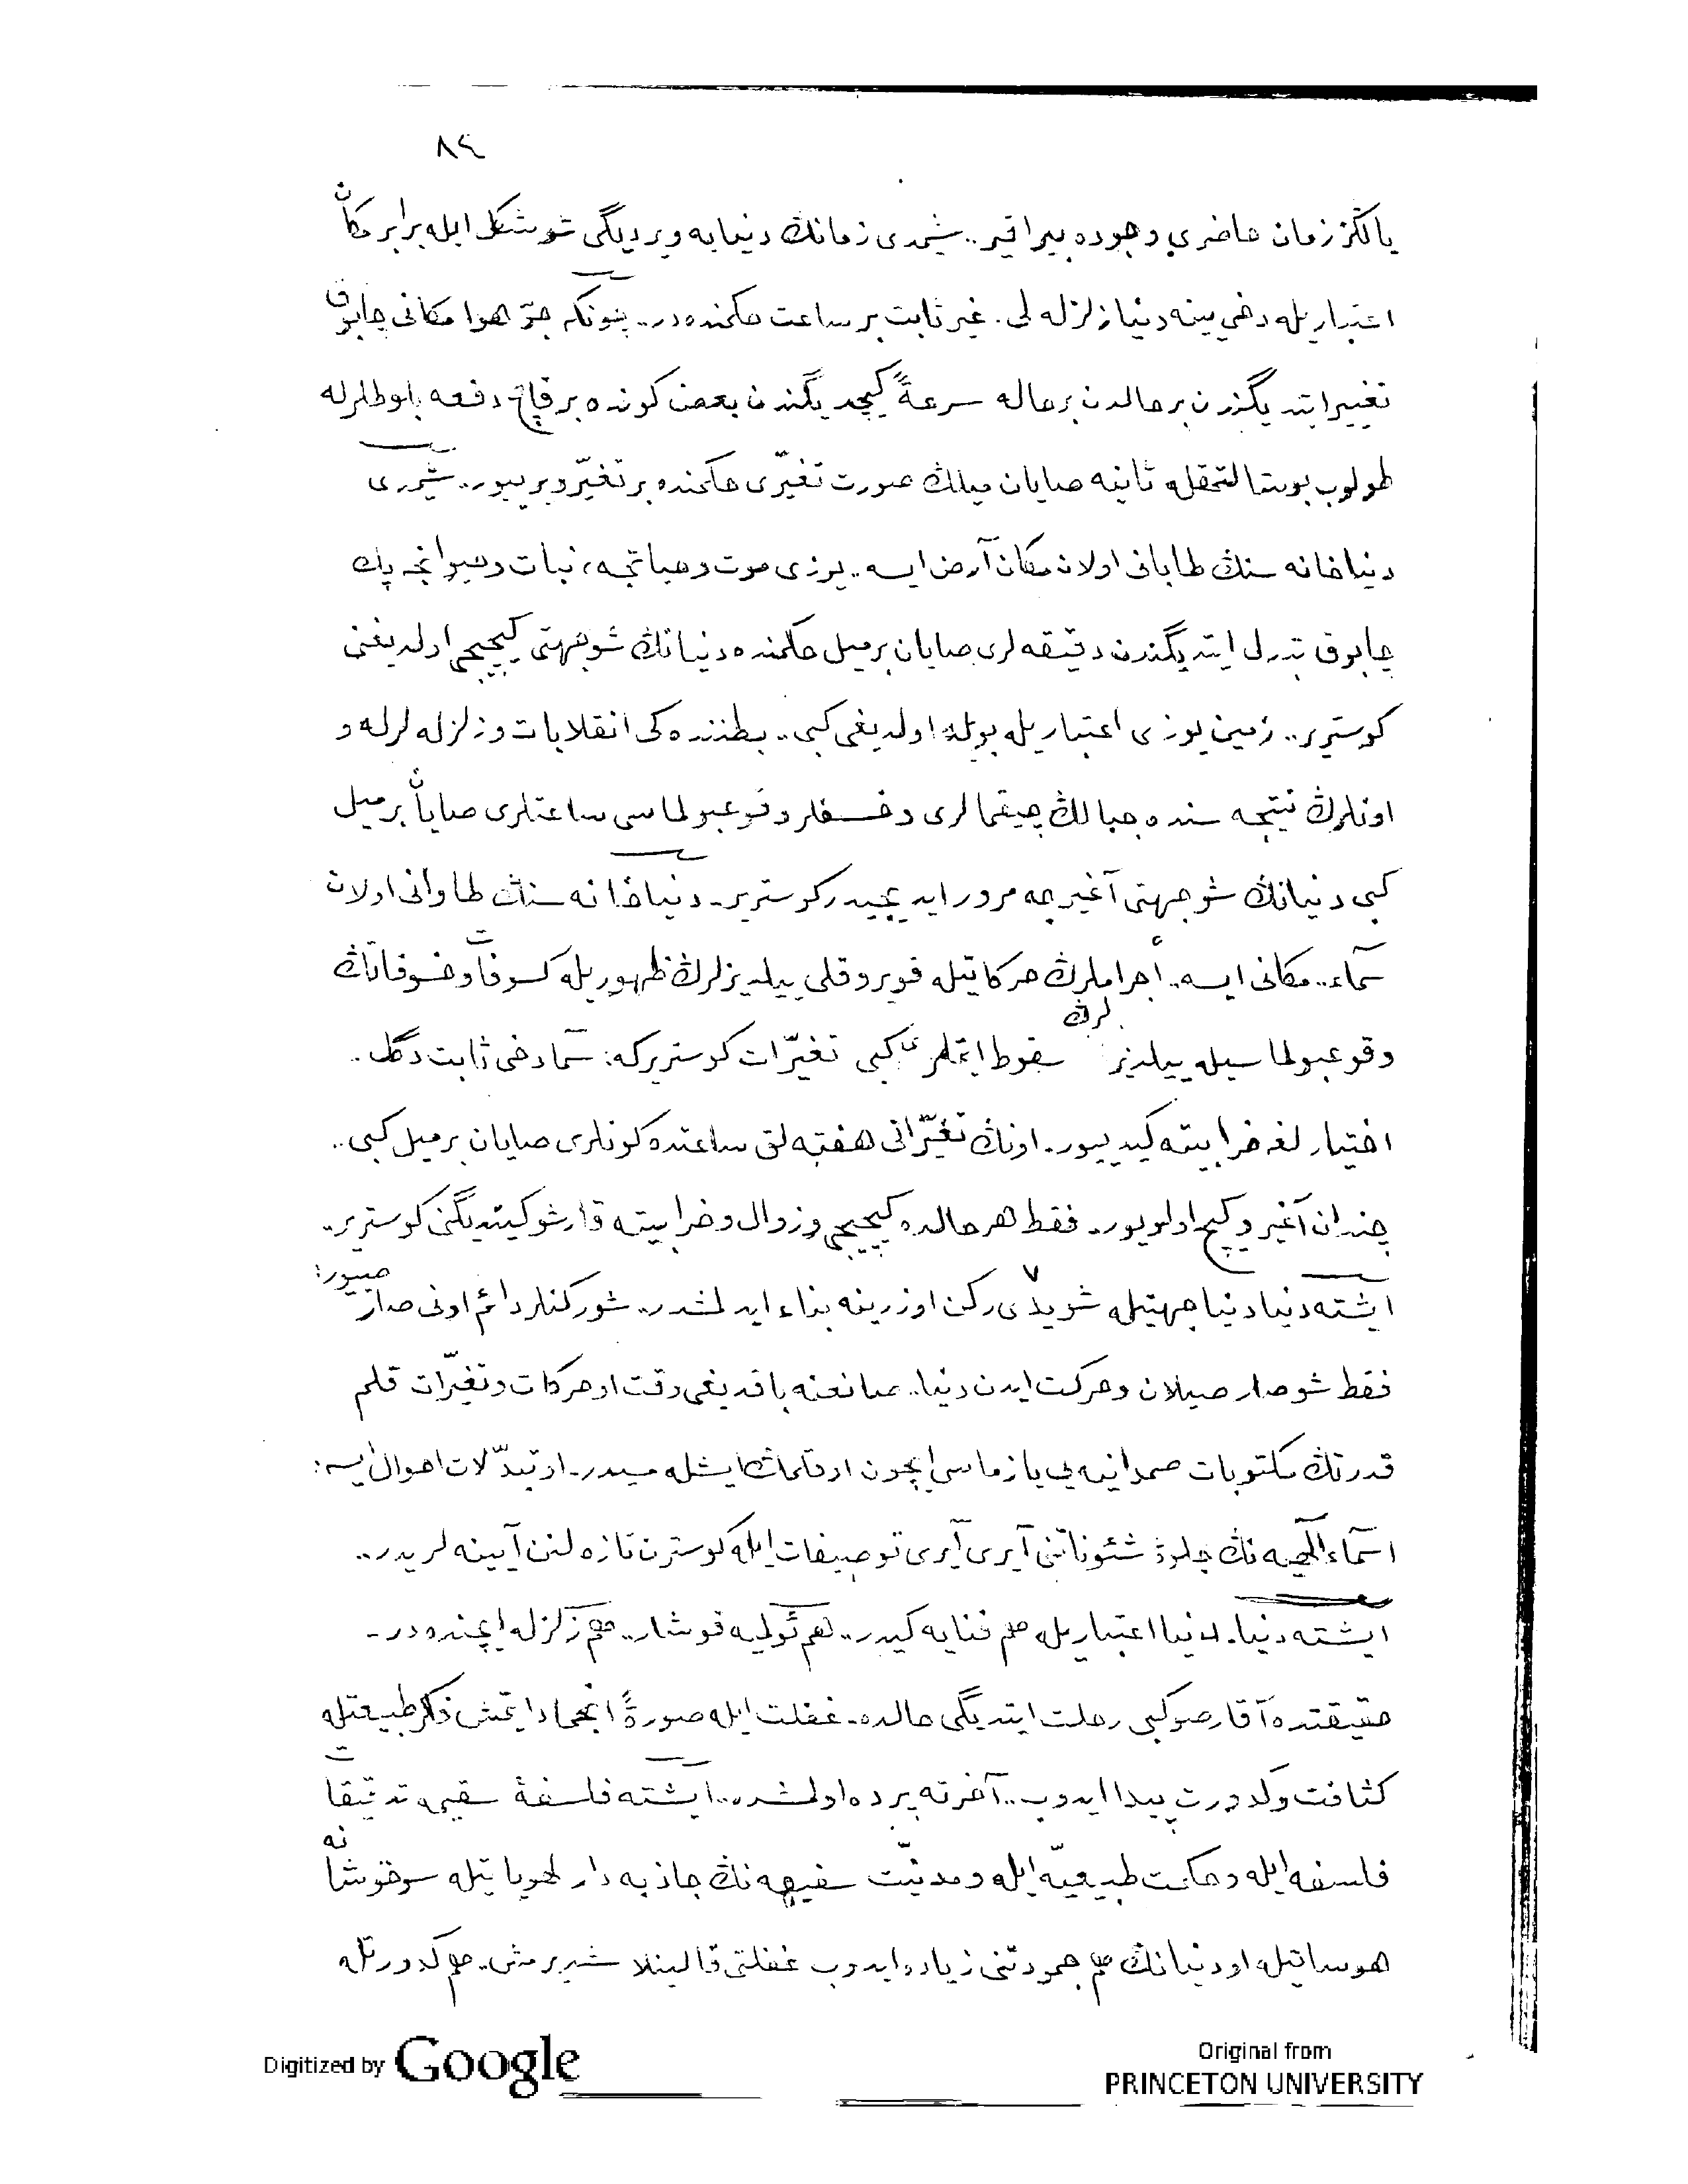 ٨٤
يالڭز زمان حاضرى وجوده بيراقير.. شيمدى زمانڭ دنيايه ويرديگى شو شكل ايله برابر مكان
اعتباريله دخى ينه دنيا زلزله لى. غير ثابت بر ساعت حكمنده در.. چونكه جوّ هوا مكانى چابوق
تغيير ايتديگندن بر حالدن بر حاله سرعةً گيچديگندن بعض كونده بر قاچ دفعه بلوطلرله
طولوب بوشالتمقله ثانيه صايان ميلڭ صورت تغيّرى حكمنده بر تغيّر ويرييور.. شيمدى
دنيا خانه سنڭ طابانى اولان مكان آرض ايسه.. يوزى موت و حياتجه، نبات و حيوانجه پك
چابوق تبدل ايتديگندن دقيقه لرى صايان بر ميل حكمنده دنيانڭ شو جهتى گيچيجى اولديغنى
كوسترير.. زمين يوزى اعتباريله بويله اولديغى كبى.. بطننده كى انقلابات و زلزله لرله و
اونلرڭ نتيجه سنده جبالڭ چيقمالرى و خسفلر وقوعبولماسى ساعتلرى صايان بر ميل
كبى دنيانڭ شو جهتى آغيرجه مرور ايديجيدر كوسترير.. دنيا خانه سنڭ طاوانى اولان
سمآء.. مكانى ايسه.. أجراملرڭ حركاتيله قويروقلى ييلديزلرڭ ظهوريله كسوفات و خسوفاتڭ
وقوعبولماسيله ييلديزلرڭ سقوط ايتملرى كبى تغيّرات كوستريركه: سما دخى ثابت دگل..
اختيارلغه خرابيته كيدييور.. اونڭ تغيّراتى هفته لق ساعتده كونلرى صايان بر ميل كبى..
چندان آغير و گيچ اولويور.. فقط هر حالده گيچيجى و زوال و خرابيته قارشو كيتديگنى كوسترير..
ايشته دنيا دنيا جهتيله شو يدى ٧ ركن اوزرينه بناء ايدلمشدر.. شو ركنلر دائم اونى صارصييور:
فقط شو صارصيلان و حركت ايدن دنيا.. صانعنه باقديغى وقت او حركات و تغيّرات قلم
قدرتڭ مكتوبات صمدانيه يى يازماسى ايچون او قلمڭ ايشله مسيدر.. او تبدّلات احوال ايسه:
اسمآء الٓهيه نڭ جلوۀ شئوناتنى آيرى آيرى توصيفات ايله كوسترن تازه لنن آيينه لريدر..
ايشته دنيا. دنيا اعتباريله هم فنايه كيدر.. هم ئولمه يه قوشار.. هم زلزله ايچنده در..
حقيقتده آقار صو كبى رحلت ايتديگى حالده.. غفلت ايله صورةً انجماد ايتمش فكر طبيعتله
كثافت و كدورت پيدا ايدوب.. آخرته پرده اولمشدر.. ايشته فلسفۀ سقيمه تدقيقات
فلسفه ايله و حكمت طبيعيّه ايله و مدنيّت سفيهه نڭ جاذبه دار لهوياتيله سرخوشانه
هوساتيله او دنيانڭ هم جمودتنى زياده ايدوب غفلتى قالينلاشديرمش.. هم كدورتله
Digitized by Google
Original from
PRINCETON UNIVERSITY